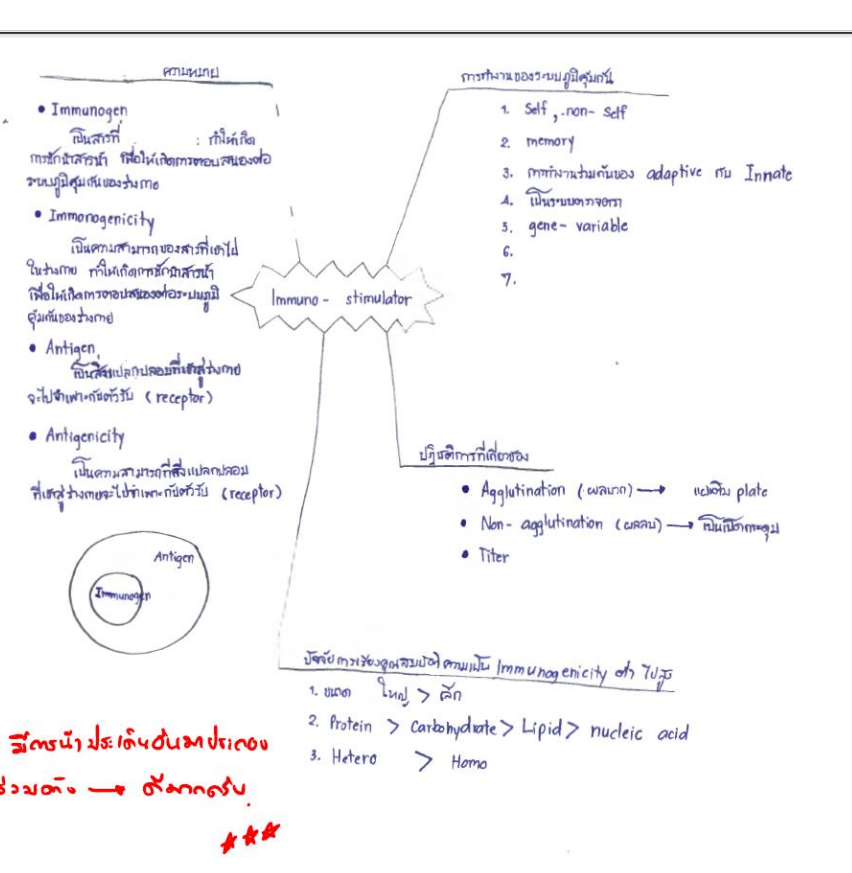 ความหมาย
• Immunogen
เป็นสารที่ : ทำให้เกิด
การชักนำสารนำ เพื่อให้เกิดการตอบสนองต่อ
ระบบภูมิคุ้มกันของร่างกาย
• Immonogenicity
เป็นความสามารถของสารที่เข้าไป
ในร่างกาย ทำให้เกิดการชักนำสารนำ
เพื่อให้เกิดการตอบสนองต่อระบบภูมิ
คุ้มกันของร่างกาย
• Antigen
เป็นสิ่งแปลกปลอมที่เข้าสู่ร่างกาย
จะไปจำเพาะกับตัวรับ (receptor)
• Antigenicity
เป็นความสามารถที่สิ่งแปลกปลอม
ที่เข้าสู่ร่างกายจะไปจำเพาะกับตัวรับ (receptor)
Antigen
Immunogen
Immuno - stimulator
การทำงานของระบบภูมิคุ้มกัน
1. Self , non - Self
2. memory
3. การทำงานร่วมกันของ adaptive กับ Innate
4. เป็นระบบ
5. gene - variable
6.
7.
ปฏิบัติการที่เกี่ยวข้อง
• Agglutination (ผลบวก) → plate
• Non - agglutination (ผลลบ) → เป็นเม็ดกระดุม
• Titer
ปัจจัยการเรียงคุณสมบัติความเป็น Immunogenicity ต่ำ ไปสูง
1. ขนาด ใหญ่ > เล็ก
2. Protein > Carbohydrate > Lipid > nucleic acid
3. Hetero > Homo
มีการนำประเด็นอื่นมาประกอบ
ร่วมด้วย → ดีมากครับ